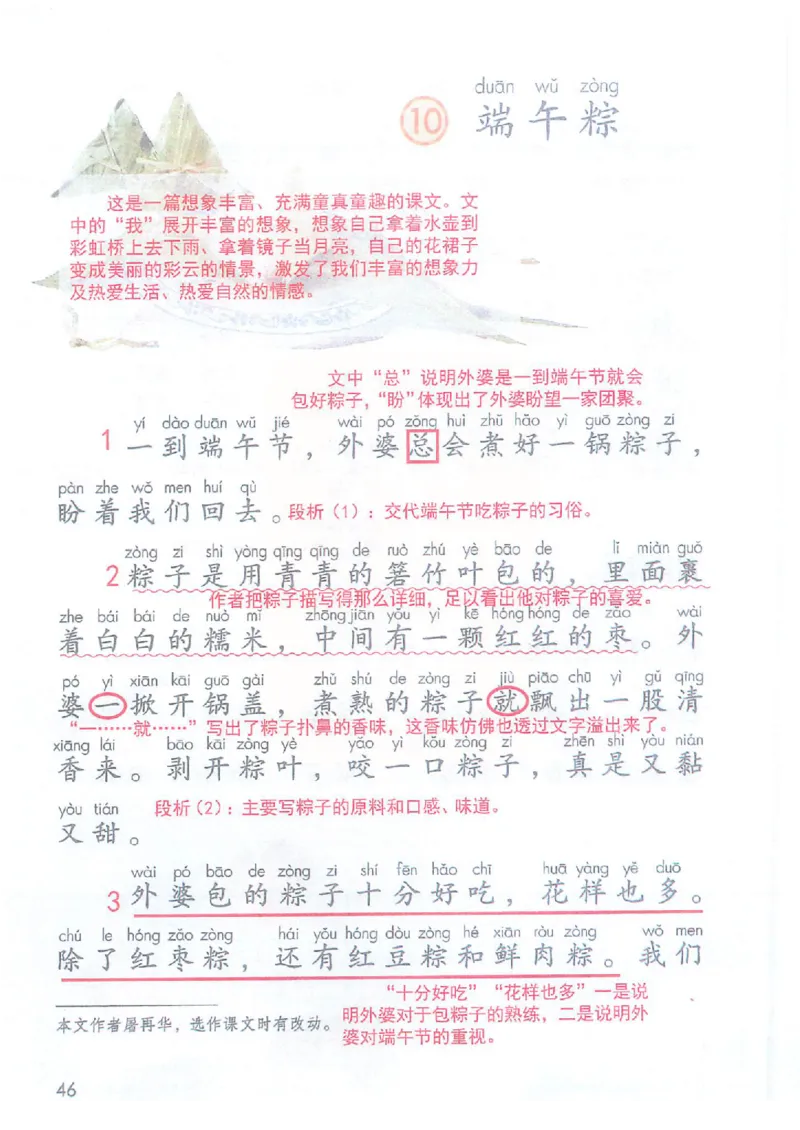 duān wǔ zòng
⑩ 端午粽
这是一篇想象丰富、充满童真童趣的课文。文
中的“我”展开丰富的想象，想象自己拿着水壶到
彩虹桥上去下雨、拿着镜子当月亮，自己的花裙子
变成美丽的彩云的情景，激发了我们丰富的想象力
及热爱生活、热爱自然的情感。
文中“总”说明外婆是一到端午节就会
包好粽子，“盼”体现出了外婆盼望一家团聚。
yí dào duān wǔ jié wài pó zǒng huì zhǔ hǎo yì guō zòng zi
1 一到端午节，外婆总会煮好一锅粽子，
pàn zhe wǒ men huí qù
盼着我们回去。段析（1）：交代端午节吃粽子的习俗。
zòng zi shì yòng qīng qīng de ruò zhú yè bāo de lǐ miàn guǒ
2 粽子是用青青的箬竹叶包的，里面裹
作者把粽子描写得那么详细，足以看出他对粽子的喜爱。
zhe bái bái de nuò mǐ zhōng jiān yǒu yì kē hóng hóng de zǎo wài
着白白的糯米，中间有一颗红红的枣。外
pó yì xiān kāi guō gài zhǔ shú de zòng zi jiù piāo chū yì gǔ qīng
婆一掀开锅盖，煮熟的粽子就飘出一股清
“一……就……”写出了粽子扑鼻的香味，这香味仿佛也透过文字溢出来了。
xiāng lái bāo kāi zòng yè yǎo yì kǒu zòng zi zhēn shì yòu nián
香来。剥开粽叶，咬一口粽子，真是又黏
yòu tián 段析（2）：主要写粽子的原料和口感、味道。
又甜。
wài pó bāo de zòng zi shí fēn hǎo chī huā yàng yě duō
3 外婆包的粽子十分好吃，花样也多。
chú le hóng zǎo zòng hái yǒu hóng dòu zòng hé xiān ròu zòng wǒ men
除了红枣粽，还有红豆粽和鲜肉粽。我们
“十分好吃”“花样也多”一是说
明外婆对于包粽子的熟练，二是说明外
婆对端午节的重视。
本文作者屠再华，选作课文时有改动。
46